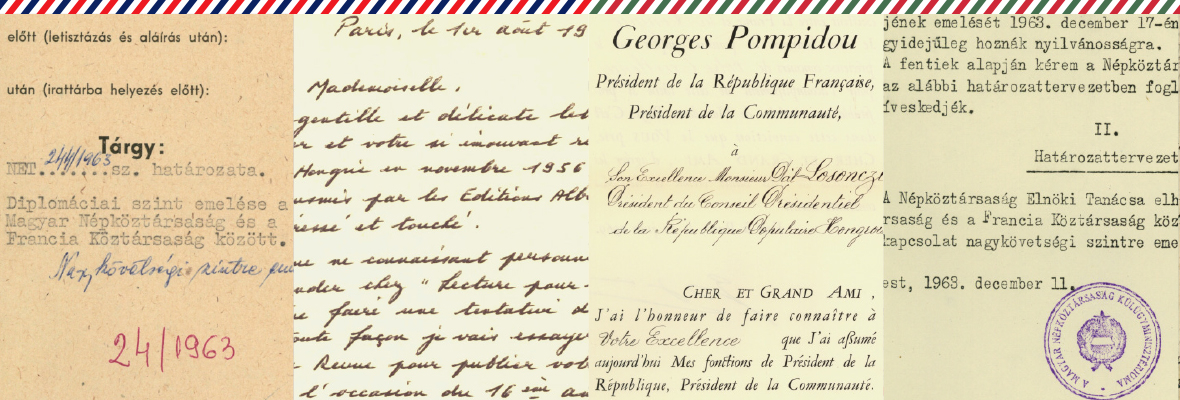 előtt (letisztázás és aláírás után):
után (irattárba helyezés előtt):
Tárgy:
NET. 244/1963 sz. határozata.
Diplomáciai szint emelése a
Magyar Népköztársaság és a
Francia Köztársaság között.
24/1963
Paris, le 1er août 19
Mademoiselle,
gentille et délicate let
et votre si émouvant
Hongrie en novembre 1956
par les Editions Alb
et touché.
ne connaissant personn
chez "Lecture pour
faire une tentative d
façon je vais essaye
Revue pour publier vot
l'occasion du 16ème an
Georges Pompidou
Président de la République Française,
Président de la Communauté,
à
Son Excellence Monsieur Pál Losoncz
Président du Conseil Présidentiel
de la République Populaire Hongro
CHER ET GRAND AMI,
J'ai l'honneur de faire connaître à
Votre Excellence que J'ai assumé
aujourd'hui Mes fonctions de Président de la
République, Président de la Communauté.
jének emelését 1963. december 17-én
gyidejüleg hoznák nyilvánosságra.
A fentiek alapján kérem a Népköztár
az alábbi határozattervezetben fogl
íveskedjék.
II.
Határozattervezet
A Népköztársaság Elnöki Tanácsa elh
rsaság és a Francia Köztársaság köz
kapcsolat nagykövetségi szintre eme
est, 1963. december 11.
A MAGYAR NÉPKÖZTÁRSASÁG KÜLÜGYMINISZTÉRIUMA